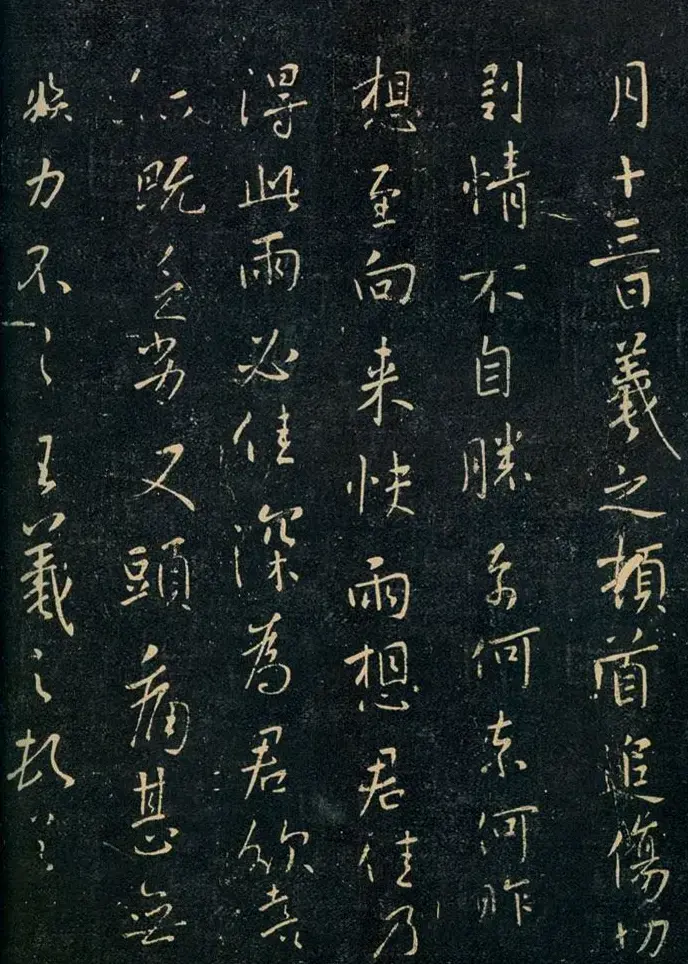 月十三日羲之頓首追傷切
割情不自勝奈何奈何昨
想至向来快雨想君佳乃
得此雨必佳深為君欣喜
既乏劣又頭痛甚無
力不一一王羲之頓首